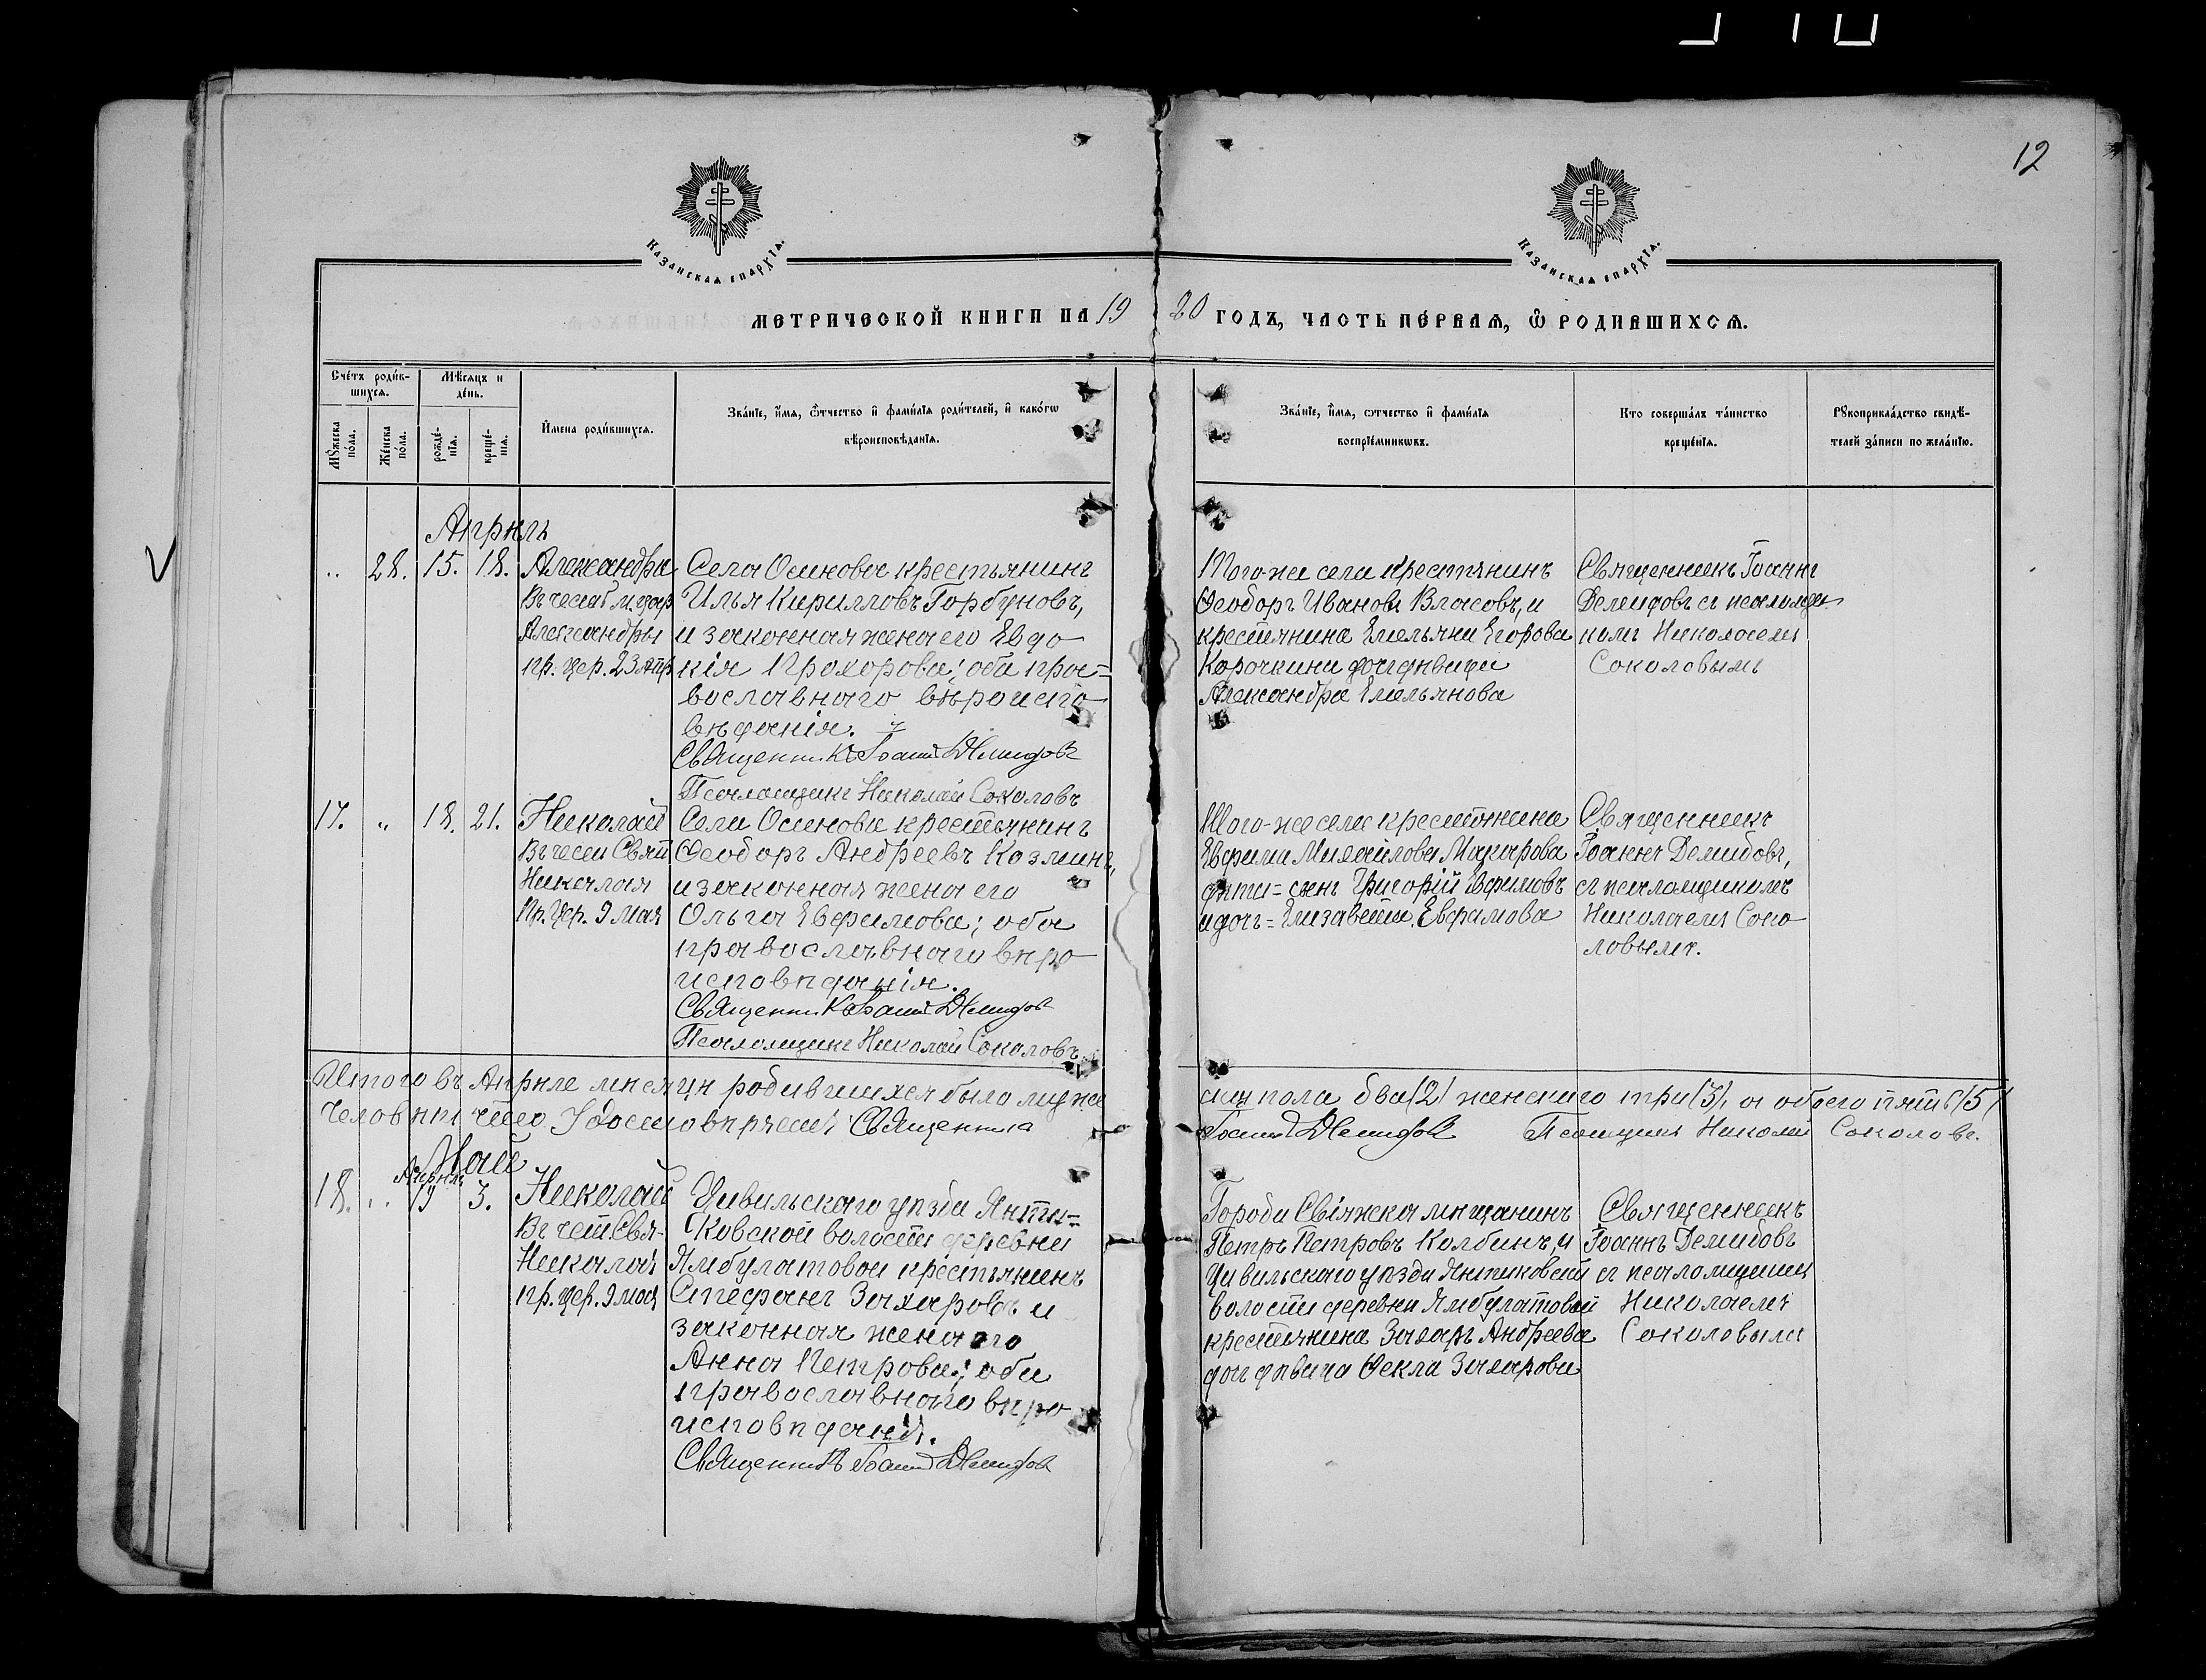 12
Казанская епархїѧ.
Казанская епархїѧ.
МЕТРИЧЕСКОЙ КНИГИ НА 1920 ГОДЪ, ЧАСТЬ ПЕ́РВАѦ, Ѿ РОДИВШИХСѦ.
Счéтъ роди́в-
шихсѧ.
Мꙋ́жеска
пóла.
Же́нска
пóла.
Мѣ́сѧцъ и
дéнь.
рожде́-
нїѧ.
креще́-
нїѧ.
И́мена роди́вшихсѧ.
Зва́нїе, и́мѧ, ѻ́тчество и҆ фами́лїѧ роди́телей, и҆ како́гѡ
вѣроисповѣ́данїѧ.
Зва́нїе, и́мѧ, ѻтчество и҆ фами́лїѧ
воспрїе́мникѡвъ.
Кто совершáлъ тáинство
креще́нїѧ.
Рꙋкоприклáдство свидѣ́-
телей зáписи по желáнїю.
Апрѣль
„ 28. 15. 18.
Александра
Въ честь м. цар
Александры
пр. цер. 23 Апр
Села Осинова крестьянинъ
Илья Кирилловъ Горбуновъ,
и законная жена его Евдо
кія Прохорова; оба пра=
вославнаго вѣроиспо
вѣданія.
Священникъ Іоаннъ Демидовъ
Псаломщикъ Николай Соколовъ
Того-же села крестьянинъ
Ѳеодоръ Ивановъ Власовъ, и
крестьянина Емельяна Егорова
Корочкина дочь дѣвица
Александра Емельянова
Священникъ Іоаннъ
Демидовъ съ псаломщи
комъ Николаемъ
Соколовымъ
17. „ 18. 21.
Николай
Въ честь Свят
Николая
Пр. Цер. 9 мая
Села Осинова крестьянинъ
Ѳеодоръ Андреевъ Козминъ,
и законная жена его
Ольга Евфимова; оба
православнаго вѣро
исповѣданія.
Священникъ Іоаннъ Демидовъ
Псаломщикъ Николай Соколовъ
Того-же села крестьянина
Евфима Михайлова Макарова
дѣти = сынъ Григорій Евфимовъ
и дочь = Елизавета Евфимова
Священникъ
Іоаннъ Демидовъ,
съ псаломщикомъ
Николаемъ Соко
ловымъ.
Итого въ Апрѣле мѣсяцѣ родившихся было муже
ска пола два (2) женскаго три (3), а обоего пять (5)
человѣкъ чего удостовѣряемъ: Священникъ
Іоаннъ Демидовъ Псаломщикъ Николай Соколовъ.
Май
Апрѣля
18. „ 19 3.
Николай
Въ чест. Свя-
Николая
пр. цер. 9 мая
Цивильскаго уѣзда Янти=
ковской волости деревни
Ямбулатовой крестьянинъ
Стефанъ Захаровъ и
законная жена его
Анна Петрова; оба
православнаго вѣро
исповѣданія.
Священникъ Іоаннъ Демидовъ
Города Свіяжска мѣщанинъ
Петръ Петровъ Колбинъ, и
Цивильскаго уѣзда Янтиковской
волости деревни Ямбулатовой
крестьянина Захаръ Андреева
дочь дѣвица Ѳекла Захарова
Священникъ
Іоаннъ Демидовъ
съ псаломщикомъ
Николаемъ
Соколовымъ